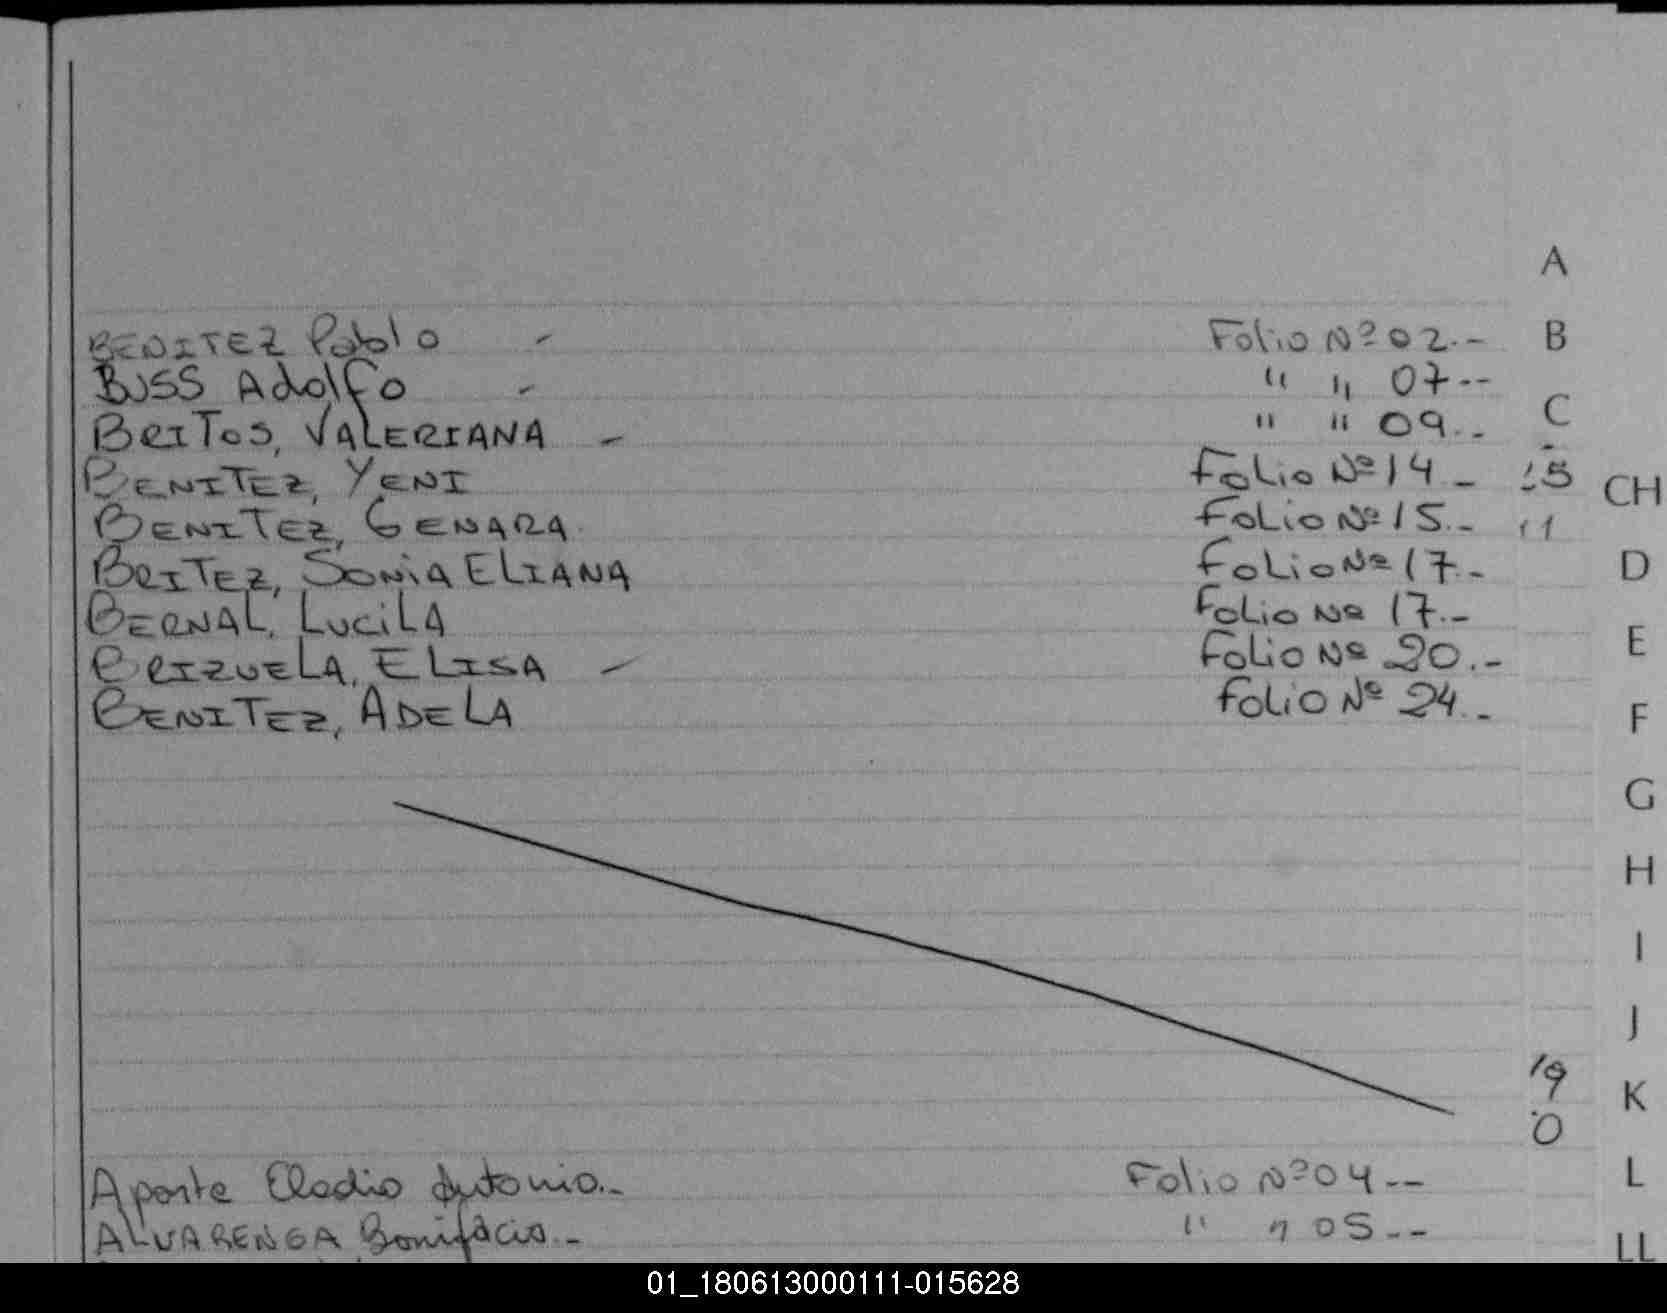 A
BENITEZ Pablo - Folio Nº 02.-- B
BUSS Adolfo - " " 07--
C
BRITOS, VALERIANA - " " 09..
BENITEZ, YENI Folio Nº 14.- 15
CH
BENITEZ, GENARA. Folio Nº 15.. 11
BRITEZ, SONIA ELIANA Folio Nº 17.- D
BERNAL, LUCILA Folio Nº 17.-
E
BRIZUELA, ELISA - Folio Nº 20.-
BENITEZ, ADELA Folio Nº 24.-
F
G
H
I
J
19
K
0
Aponte Eladio Antonio.- Folio Nº 04-- L
ALVARENGA Bonifacio.- " " 05--
LL
01_180613000111-015628